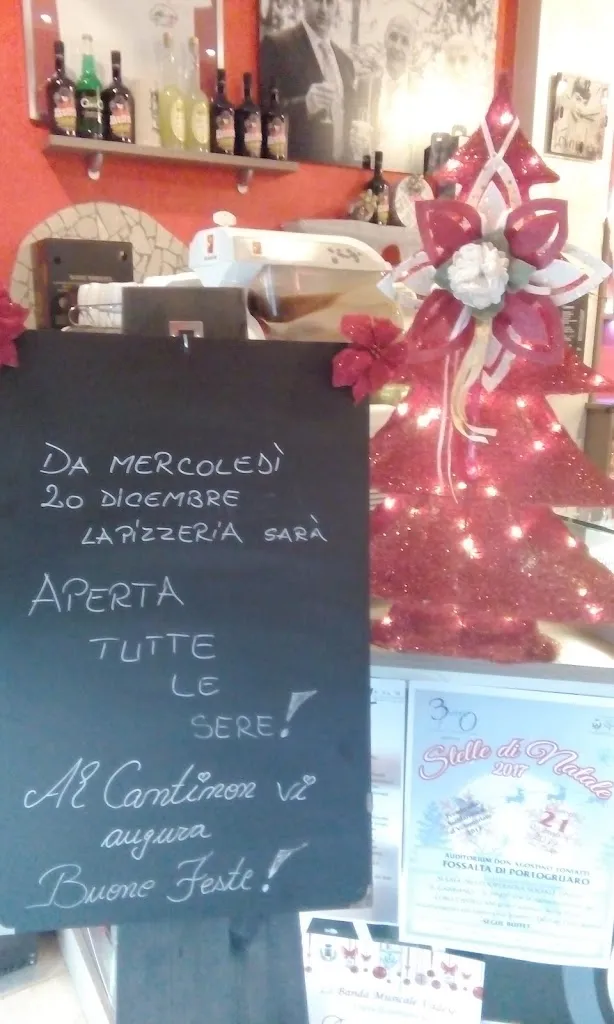 DA MERCOLEDÌ
20 DICEMBRE
LA PIZZERIA SARÀ
APERTA
TUTTE
LE
SERE!
Al Cantinon vi
augura
Buone Feste!
30
Stelle di Natale
2017
21
FOSSALTA DI PORTOGRUARO
Banda Musicale